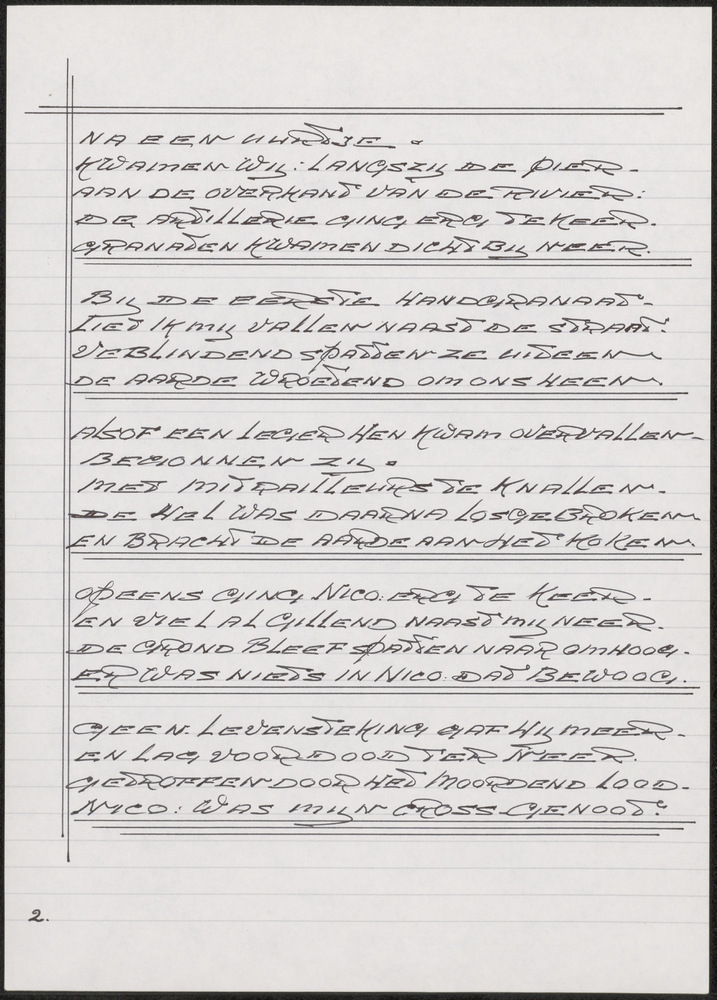 NA EEN UURTJE.
KWAMEN WIJ: LANGSZIJ DE PIER-
AAN DE OVERKANT VAN DE RIVIER:
DE ARTILLERIE GING ERG TEKEER.
GRANATEN KWAMEN DICHTBIJ NEER.
BIJ DE EERSTE HANDGRANAAT-
LIET IK MIJ VALLEN NAAST DE STRAAT:
VERBLINDEND SPATTEN ZE UITEEN
DE AARDE WROETEND OM ONS HEEN.
ALSOF EEN LEGER HEN KWAM OVERVALLEN-
BEGONNEN ZIJ.
MET MITRAILLEURS TE KNALLEN.
DE HEL WAS DAARNA LOSGEBROKEN
EN BRACHT DE AARDE AAN HET KOKEN.
OPEENS GING NICO: ERG TE KEER-
EN VIEL AL GILLEND NAAST MIJ NEER.
DE GROND BLEEF SPATTEN NAAR OMHOOG.
ER WAS NIETS IN NICO: DAT BEWOOG.
GEEN LEVENSTEKING GAF HIJ MEER-
EN LAG VOOR DOOD TER NEER.
GETROFFEN DOOR HET MOORDEND LOOD-
NICO: WAS MIJN CROSS-GENOOT:
2.